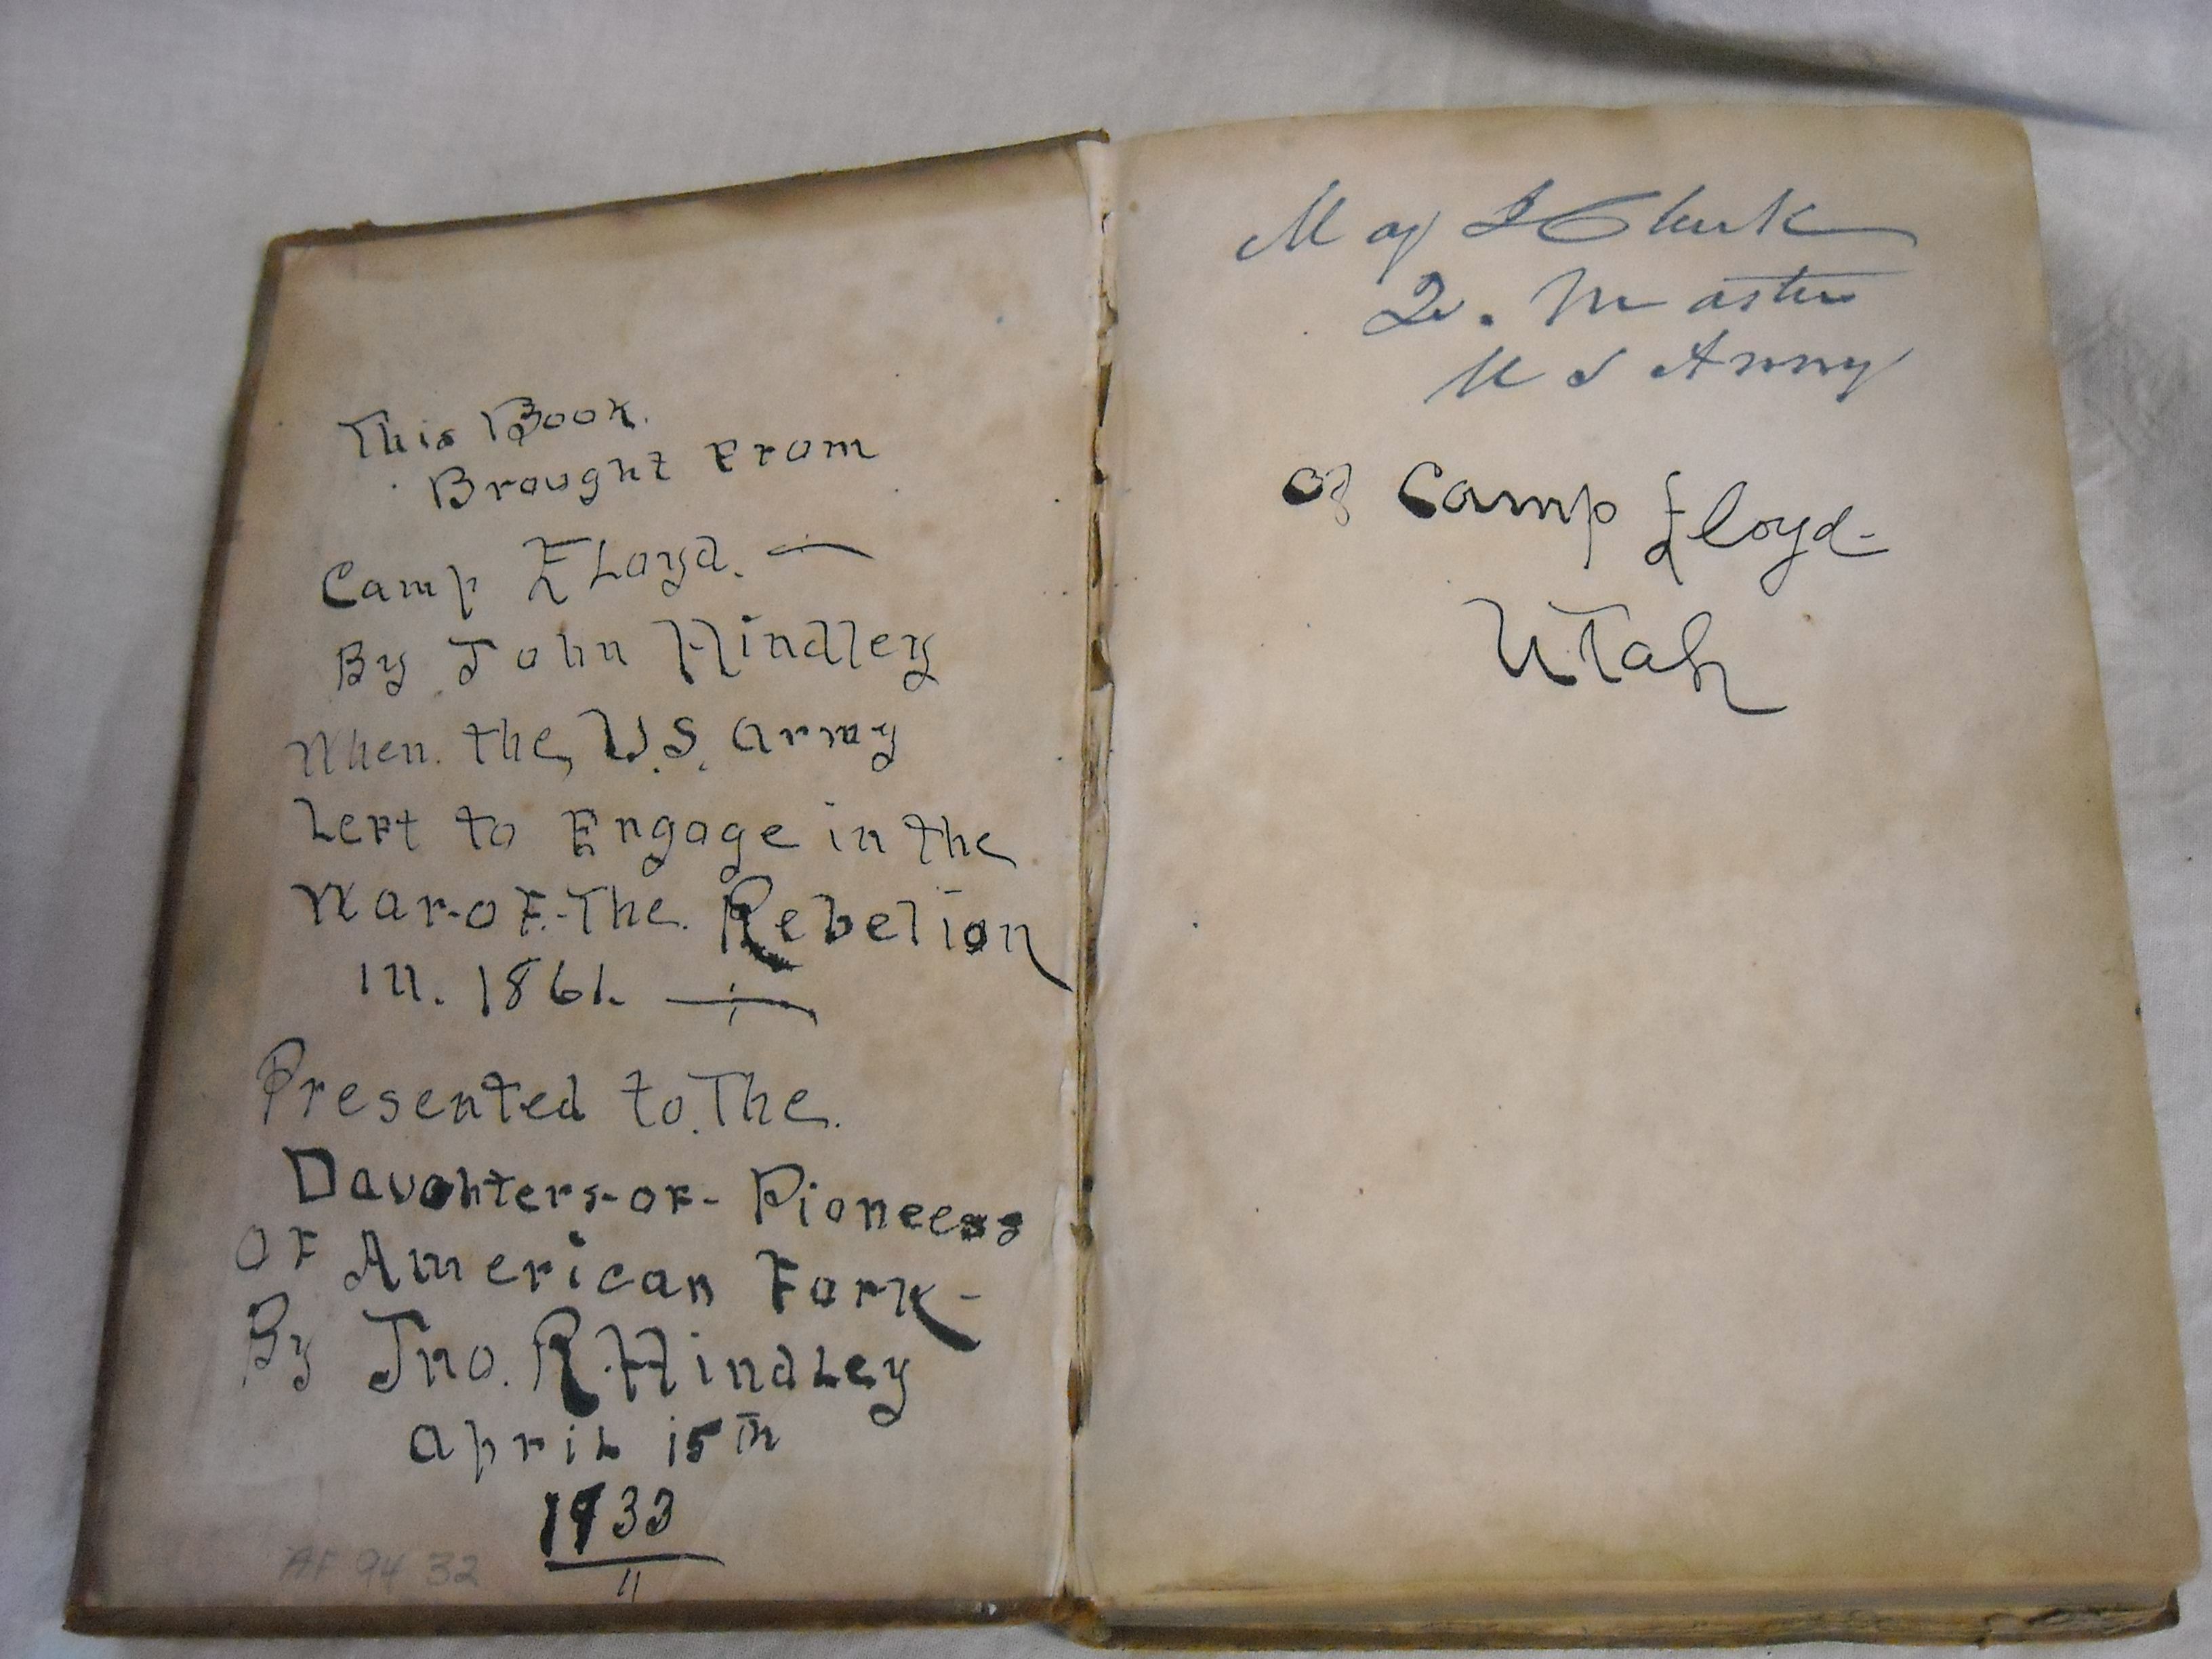 This Book.
Brought From
Camp FLoyd. —
By John Hindley
When. the, U.S. army
Left to Engage in the
War-of-The. Rebelion
in. 1861. —
Presented to. The.
Daughters-of- Pioneers
OF American Fork-
By Jno. R. Hindley
april 15th
1933
"
AF 94 32
Maj
Qr. Master
U S Army
of Camp Floyd-
Utah